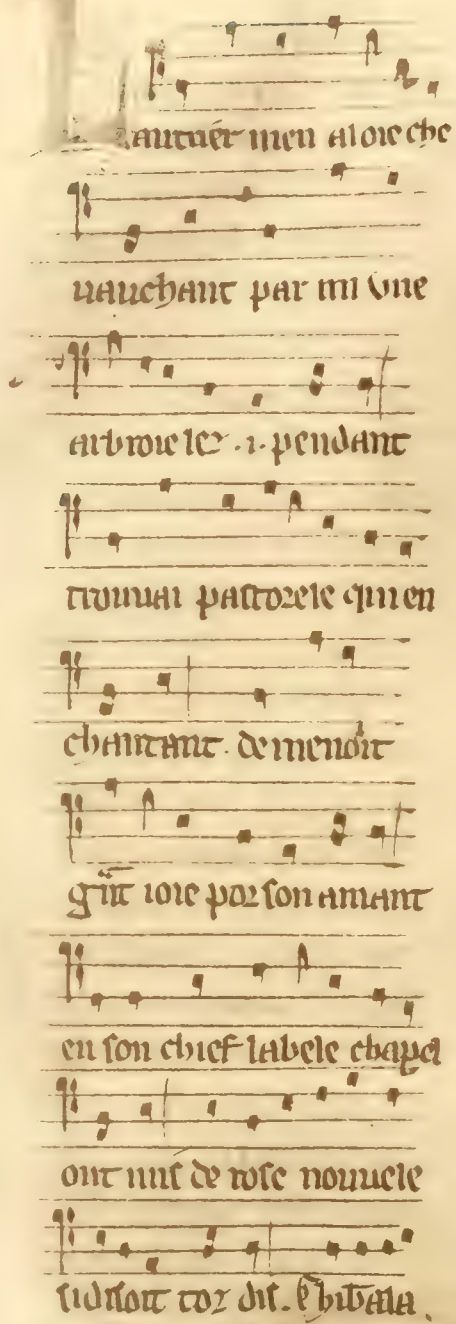 Lautrier men aloie che
uauchant par mi une
arbroie lez .i. pendant
trouuai pastorele qui en
chantant. demenoit
gnt ioie por son amant
en son chief la bele chapel
ont mis de rose nouuele
si disoit toz dis.